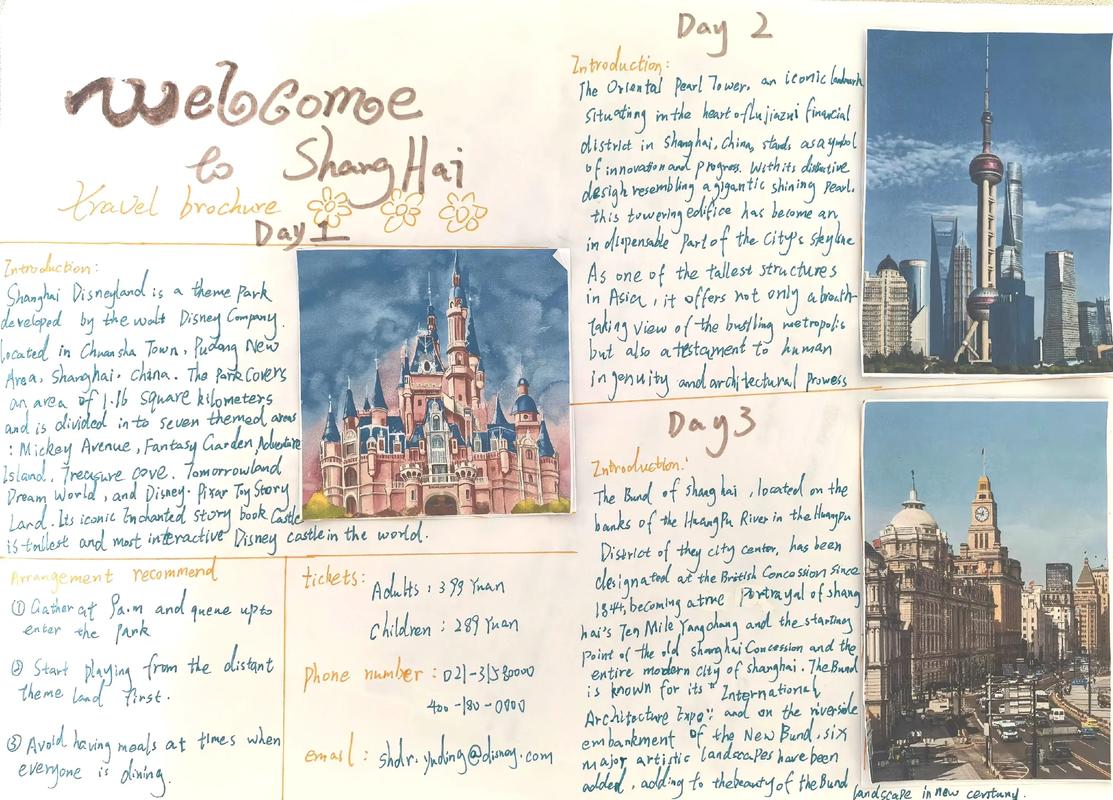 Welcome
to ShangHai
travel brochure
Day 1
Introduction:
Shanghai Disneyland is a theme Park
developed by the walt Disney Company.
Located in Chuansha Town, Pudong New
Area, Shanghai. China. The Park Covers
an area of 1.16 square kilometers
and is divided into seven themed areas
: Mickey Avenue, Fantasy Garden, Adventure
Island, Treasure cove, Tomorrowland
Dream World, and Disney·Pixar Toy Story
Land. Its iconic Enchanted Story book Castle
is tallest and most interactive Disney castle in the world.
Arrangement recommend
① Gather at and queue up to
enter the Park
② Start playing from the distant
theme land first.
③ Avoid having meals at times when
everyone is dining.
tickets:
Adults: 399 Yuan
Children: 289 Yuan
phone number: 021-31580000
400-180-0000
email: shdr.yuding@disney.com
Day 2
Introduction:
The Oriental Pearl Tower, an iconic landmark
Situating in the heart of Lujiazui financial
district in Shanghai, China, stands as a symbol
of innovation and progress. With its distinctive
design resembling a gigantic shining pearl,
this towering edifice has become an
indispensable Part of the City's skyline
As one of the tallest structures
in Asia, it offers not only a breath-
taking view of the bustling metropolis
but also a testament to human
ingenuity and architectural prowess
Day 3
Introduction:
The Bund of Shanghai, located on the
banks of the HuangPu River in the Huangpu
District of they city center, has been
designated at the British Concession since
1844, becoming a true portrayal of shang
hai's Ten Mile Yangchang and the starting
Point of the old Shanghai Concession and the
entire modern city of shanghai. The Bund
is known for its "International
Architecture Expo", and on the riverside
embankment of the New Bund, six
major artistic landscapes have been
added, adding to the beauty of the Bund
landscape in new century.